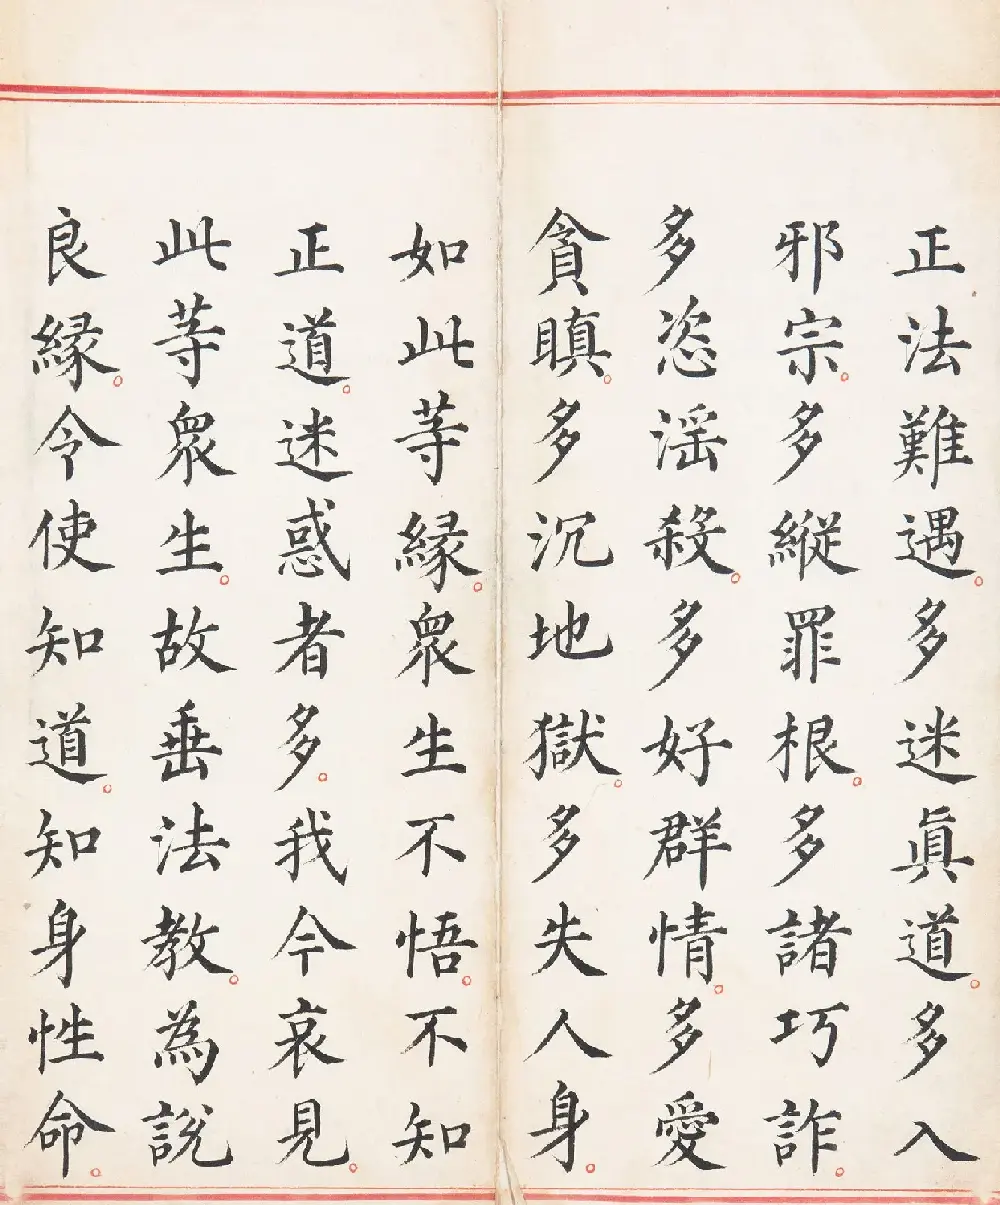 正法難遇。多迷眞道。多入
邪宗。多縱罪根。多諸巧詐。
多恣滛殺。多好群情。多愛
貪瞋。多沉地獄。多失人身。
如此等縁。衆生不悟。不知
正道。迷惑者多。我今哀見。
此等衆生。故垂法教。為說
良縁。令使知道。知身性命。